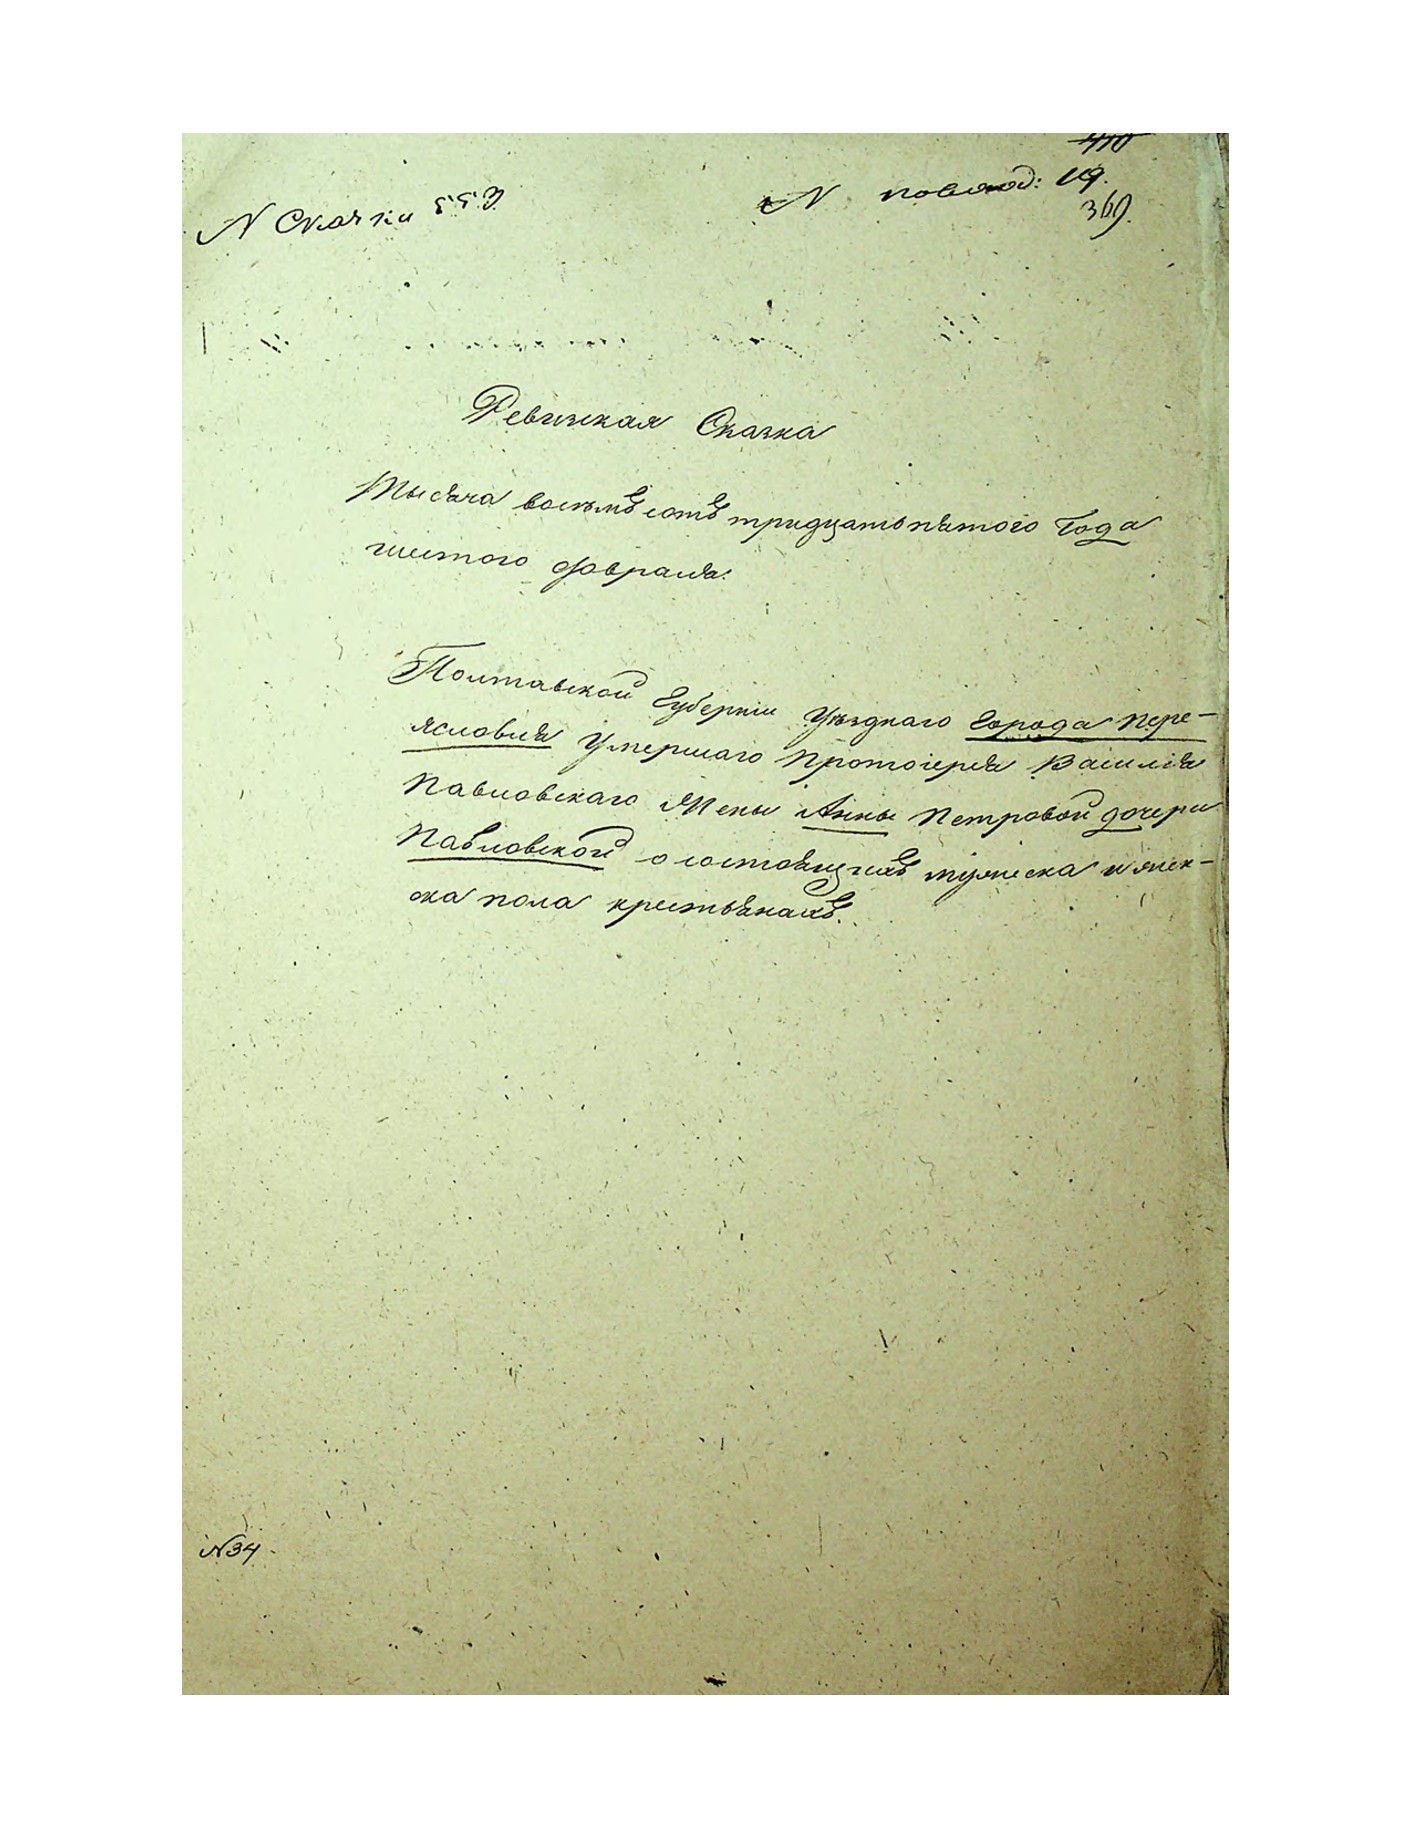 410
N Сказки 553
N повлад: 19.
369.
Ревизская Сказка
Тысяча восемъсотъ тридцатьпятого Года
шестого февраля:
Полтавской Губерніи Уѣзднаго Города Пере-
яславля Умершаго Протоіерея Василія
Павловскаго Жены Анны Петровой дочери
Павловской о состоящихъ мужеска и жен-
ска пола крестьянахъ.
N34